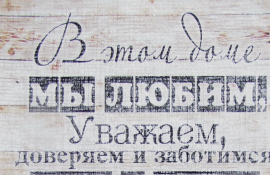 В этом доме
МЫ ЛЮБИМ,
Уважаем,
доверяем и заботимся